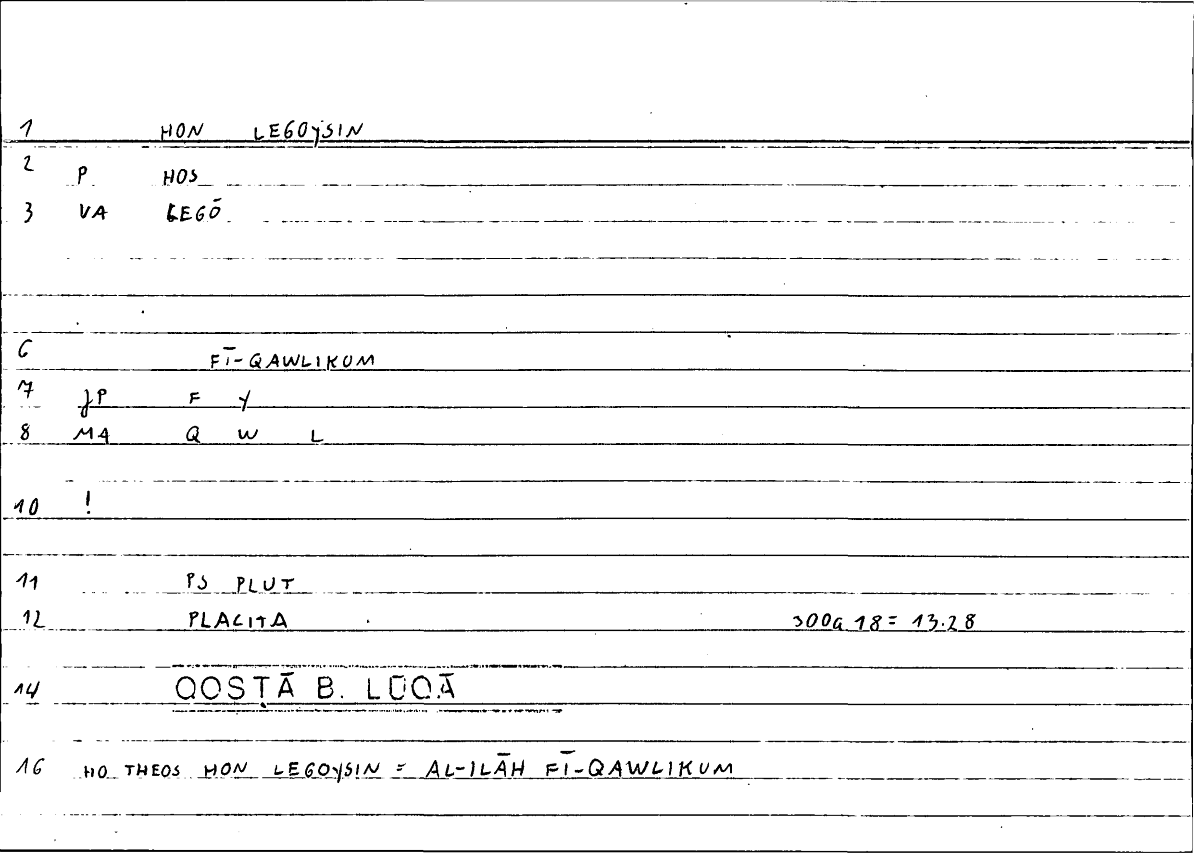 1 HON LEGOySIN
2 P HOS
3 VA LEGŌ
6 FĪ-QAWLIKUM
7 P F Y
8 MA Q W L
10 !
11 PS PLUT
12 PLACITA 300a 18 = 13.28
14 QOSṬĀ B. LŪQĀ
16 HO THEOS HON LEGOySIN = AL-ILĀH FĪ-QAWLIKUM